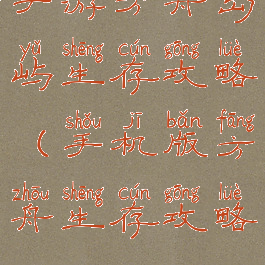 手游方舟山
yǔ shēng cún gōng lüè
屿生存攻略
shǒu jī bǎn fāng
(手机版方
zhōu shēng cún gōng lüè
舟生存攻略